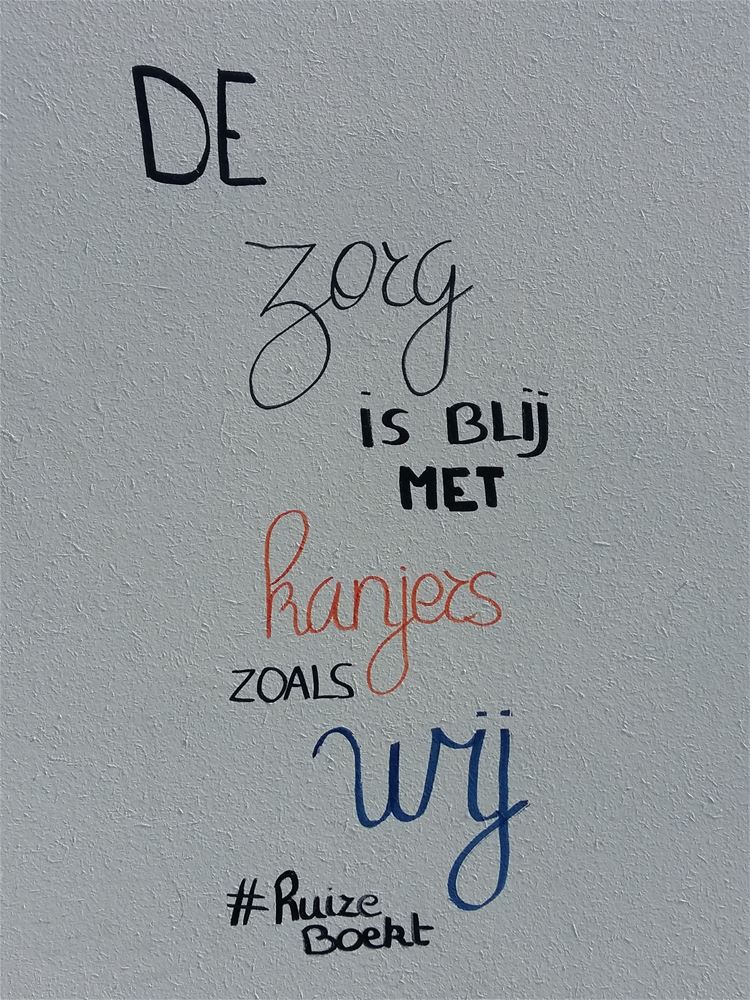 DE
zorg
is BLIJ
MET
kanjers
ZOALS
wij
#Ruize
Boekt